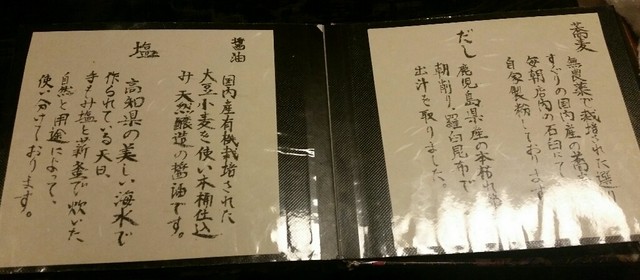 蕎麦
無農薬で栽培された選り
すぐりの国内産の蕎
毎朝店内の石臼にて
自家製粉しております
だし
鹿児島県産の本枯れ節
朝削り、羅臼昆布で
出汁を取りました。
醤油
国内産有機栽培された
大豆小麦を使い木桶仕込
み天然醸造の醤油です。
塩
高知県の美しい海水で
作られている天日、
手もみ塩と薪釜で炊いた
自然と用途によって、
使い分けております。